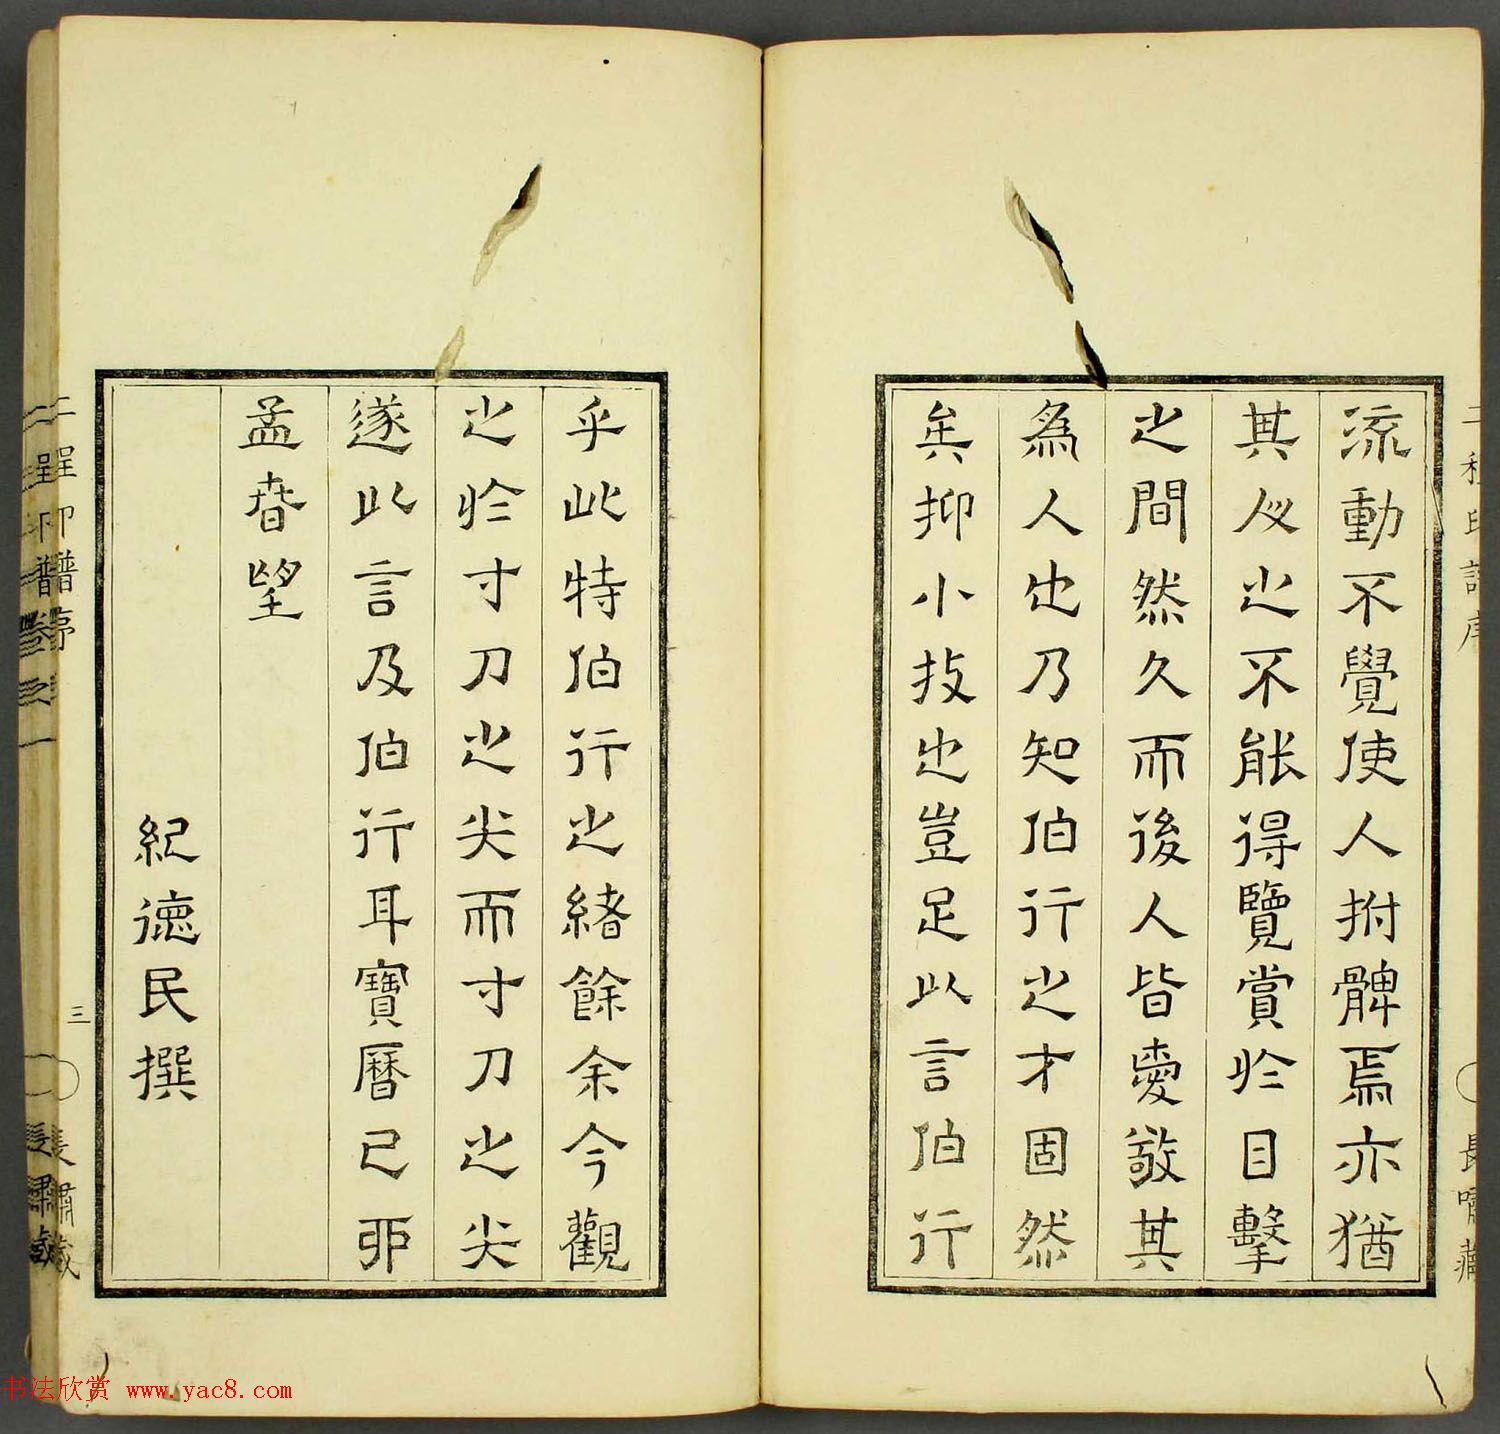 流動不覺使人拊髀焉亦猶
其必之不能得覽賞於目擊
之間然久而後人皆愛敬其
為人也乃知伯行之才固然
矣抑小技也豈足以言伯行
乎此特伯行之緒餘余今觀
之於寸刀之尖而寸刀之尖
遂以言及伯行耳寶曆己卯
孟春望
紀德民撰
二程印譜序
三
長嘯藏
书法欣赏 www.yac8.com